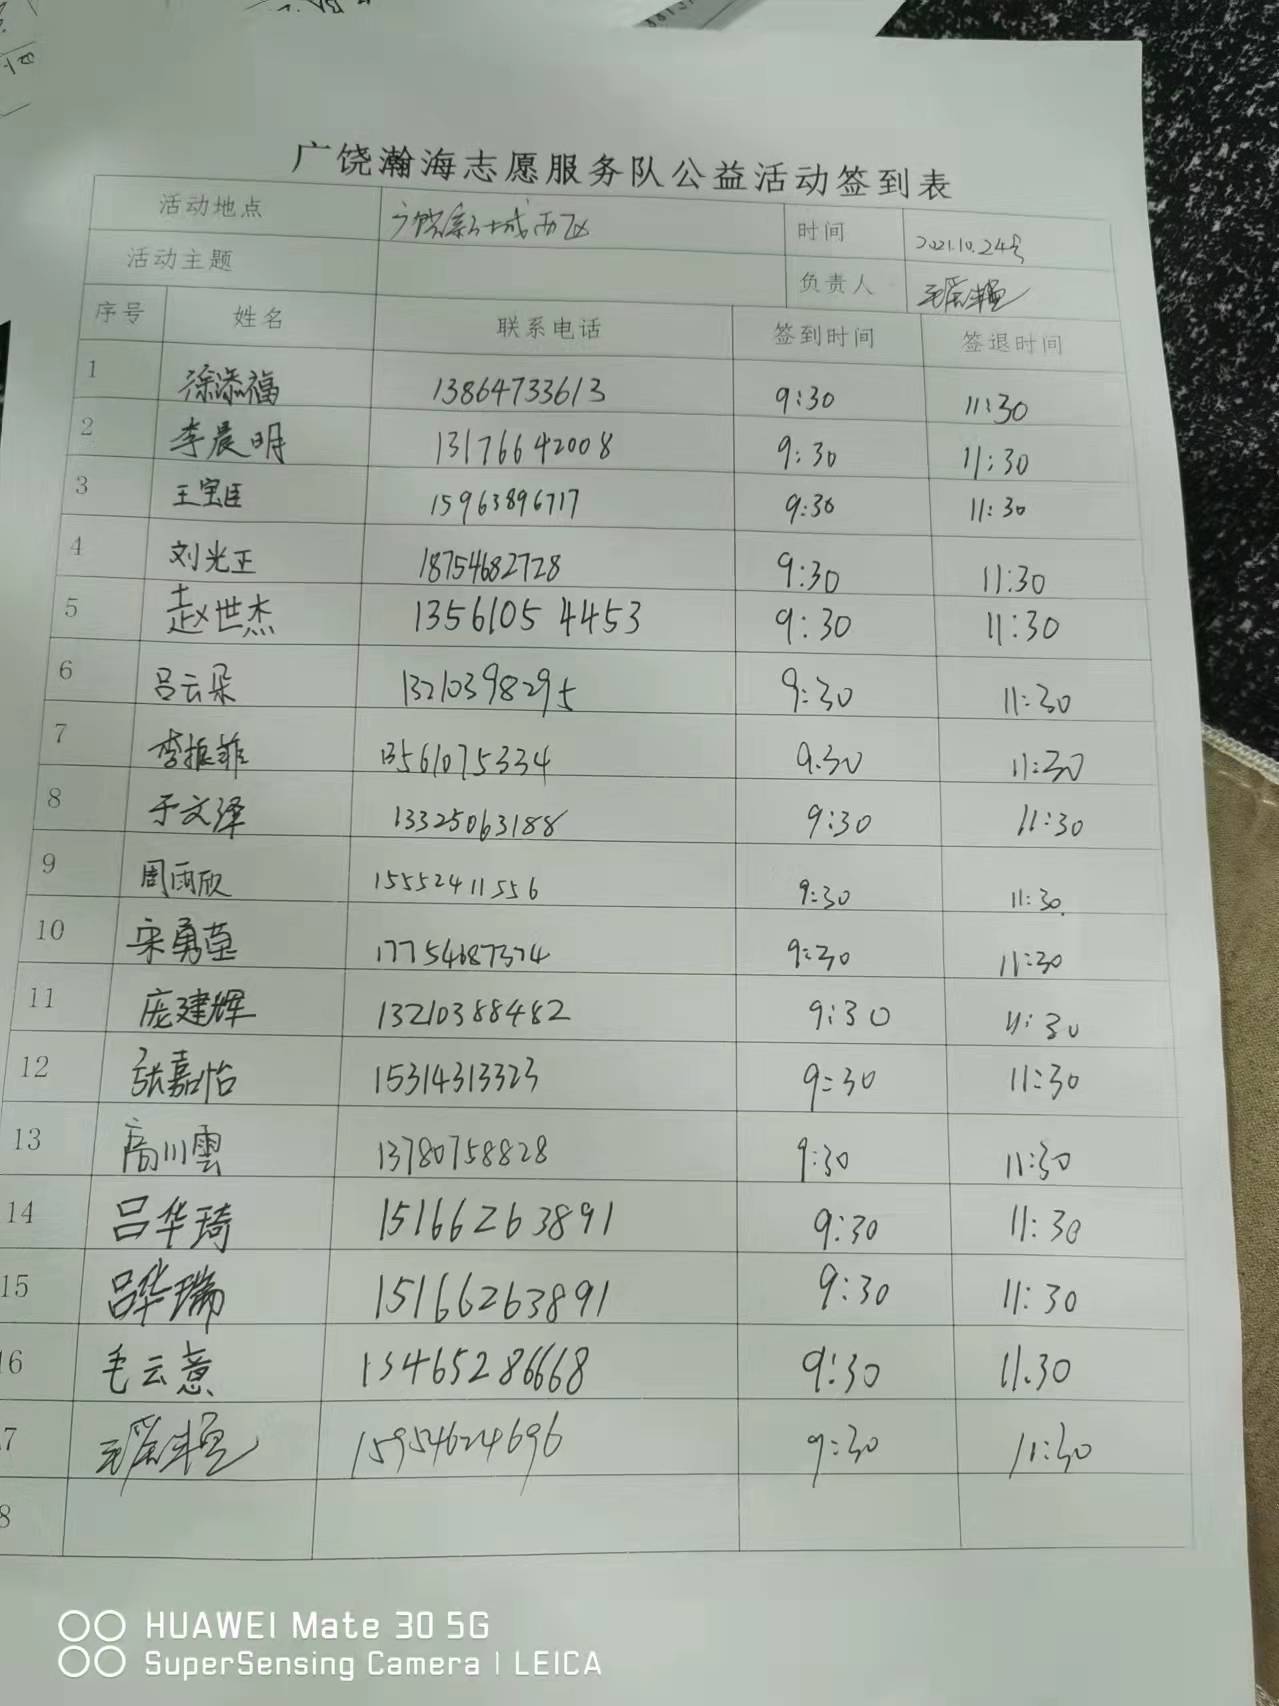 广饶瀚海志愿服务队公益活动签到表
活动地点 广饶新城西区 时间 2021.10.24号
活动主题 负责人
序号 姓名 联系电话 签到时间 签退时间
1 徐添福 13864733613 9:30 11:30
2 李晨明 13176642008 9:30 11:30
3 王宝臣 15963896717 9:30 11:30
4 刘光正 18754682728 9:30 11:30
5 赵世杰 13561054453 9:30 11:30
6 吕云朵 13210398295 9:30 11:30
7 李振菲 13561075334 9.30 11:30
8 于文泽 13325063188 9:30 11:30
9 周雨欣 15552411556 9:30 11:30
10 宋勇莹 17754687374 9:30 11:30
11 庞建辉 13210388482 9:30 11:30
12 张嘉怡 15314313323 9:30 11:30
13 高川雲 13780758828 9:30 11:30
14 吕华琦 15166263891 9:30 11:30
15 吕华瑞 15166263891 9:30 11:30
6 毛云意 13465286668 9:30 11.30
7 15954624696 9:30 11:30
8
HUAWEI Mate 30 5G
SuperSensing Camera | LEICA